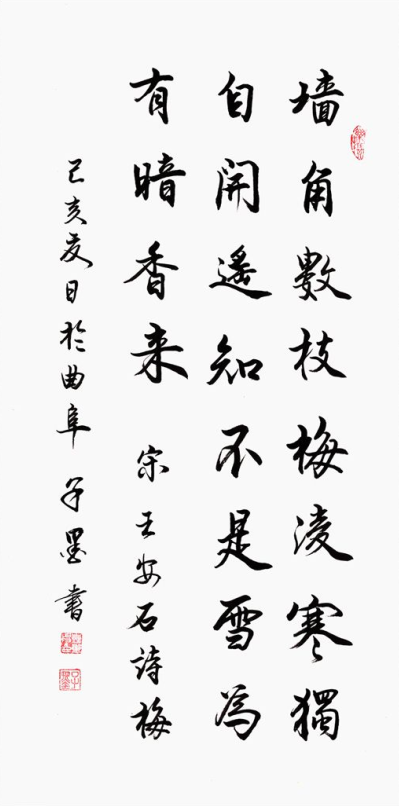 墙角數枝梅凌寒獨
自開遙知不是雪為
有暗香来 宋王安石詩梅
己亥夏日於曲阜 子墨書